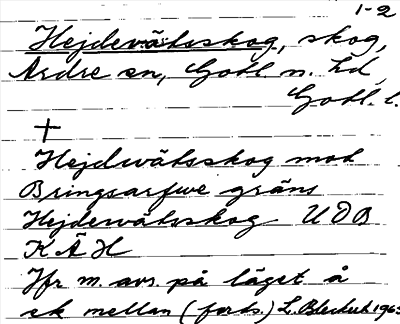 1-2
Hejdevätsskog, skog,
Ardre sn, Gotl. n. hd,
Gotl. l.
+
Hejdwätsskog mot
Bringsarfwe gräns
Hejderwätsskog UDB
KÄH
Jfr m. avs. på läget å
ek mellan (forts.) L. Bleckert 1965